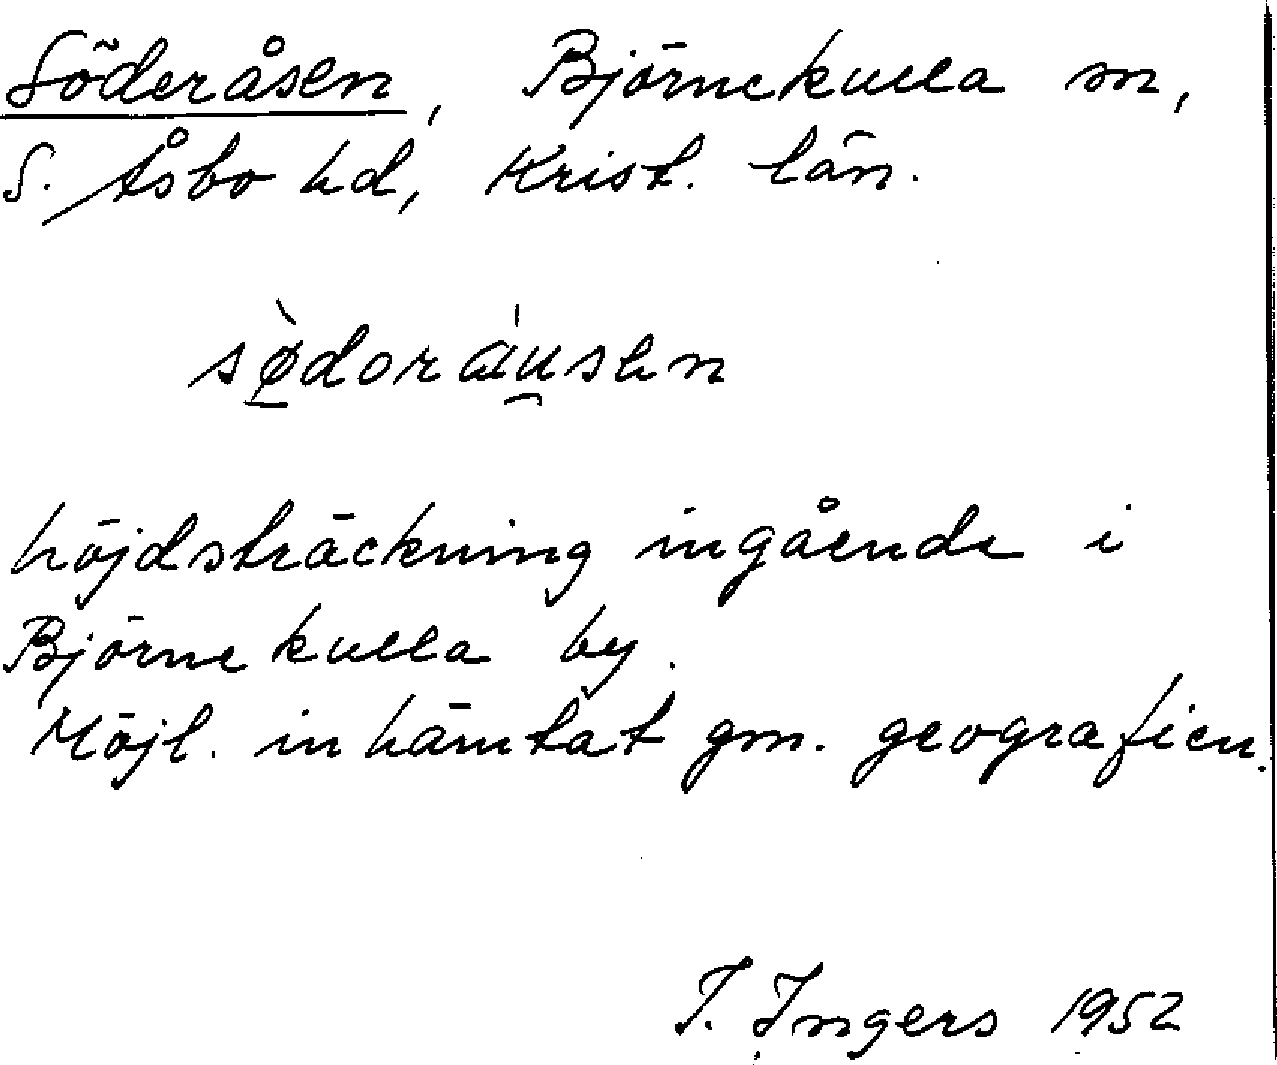 Söderåsen, Björnekulla sn,
S. Åsbo hd, Krist. län.
sø̀doráusen
höjdsträckning ingående i
Björnekulla by.
Möjl. inhämtat gm. geografien.
I. Ingers 1952